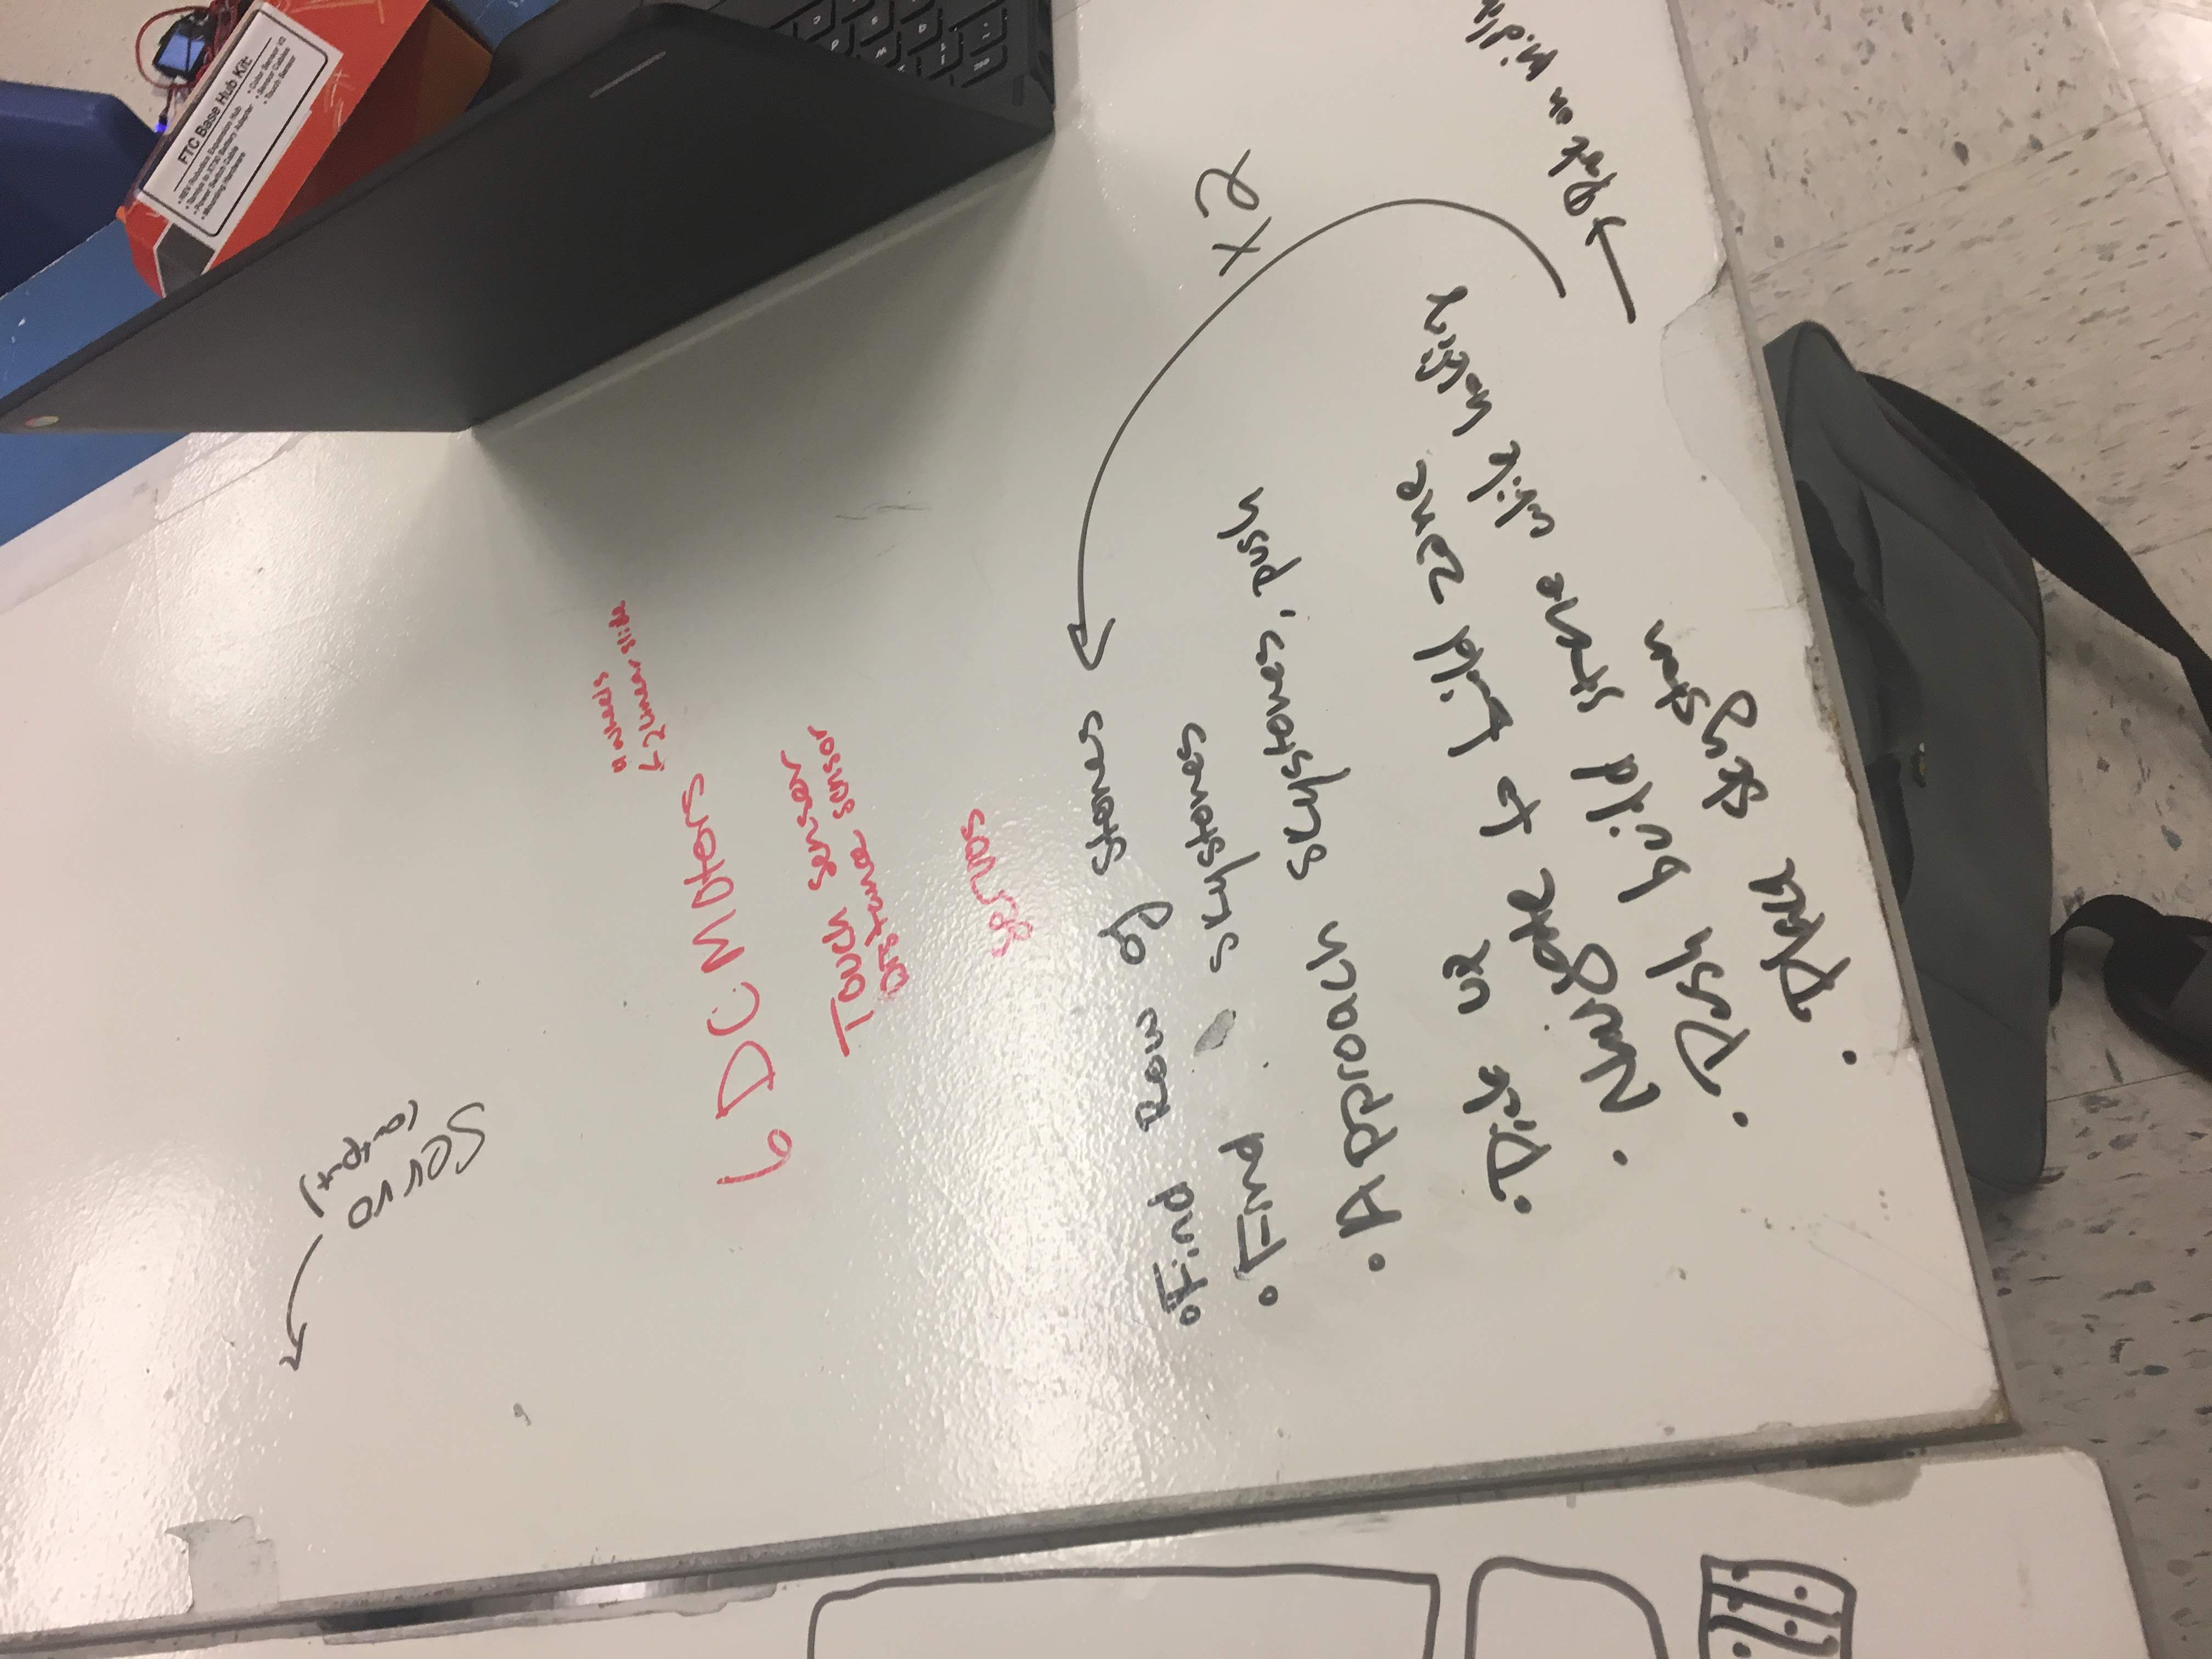 FTC Base Hub Kit:
• REV Robotics Expansion Hub
• Tamiya to XT30 Battery Adapter
• Power Switch Cable
• Mounting Hardware
• Color Sensor V2
• Sensor Cables
• Touch Sensor
Servo
(output)
4 wheels
2 linear slide
6 DC Motors
Touch sensor
Distance sensor
servos
• Find Row of stones
• Find skystones
• Approach skystones, push
x2
• Pick up
• Navigate to build zone
• Push build stone while holding
• Place skyston
→ Park on